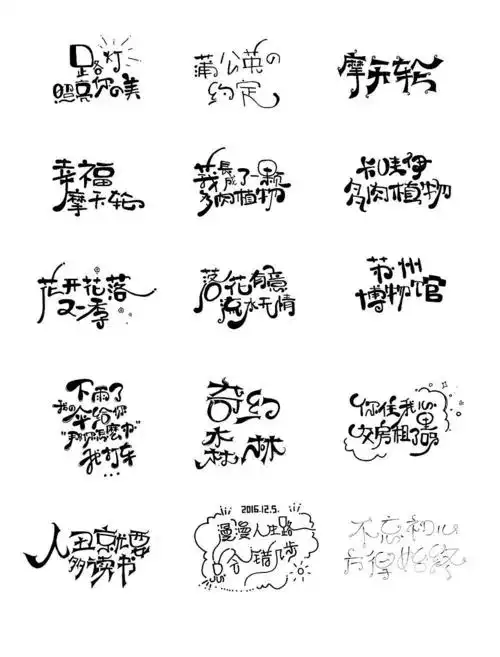 路灯
照亮你の美
蒲公英の
约定
摩天轮
幸福
摩天轮
我長成了一颗
多肉植物
卡哇伊
多肉植物
花开花落
又一季
落花有意
流水无情
苏州
博物馆
下雨了
我の伞给你
"那你怎麽办"
我打车
...
奇约
森林
你住我心里
交房租了吗
人丑就要
多读书
2016.12.5.
漫漫人生路
会错几步
不忘初心
方得始终